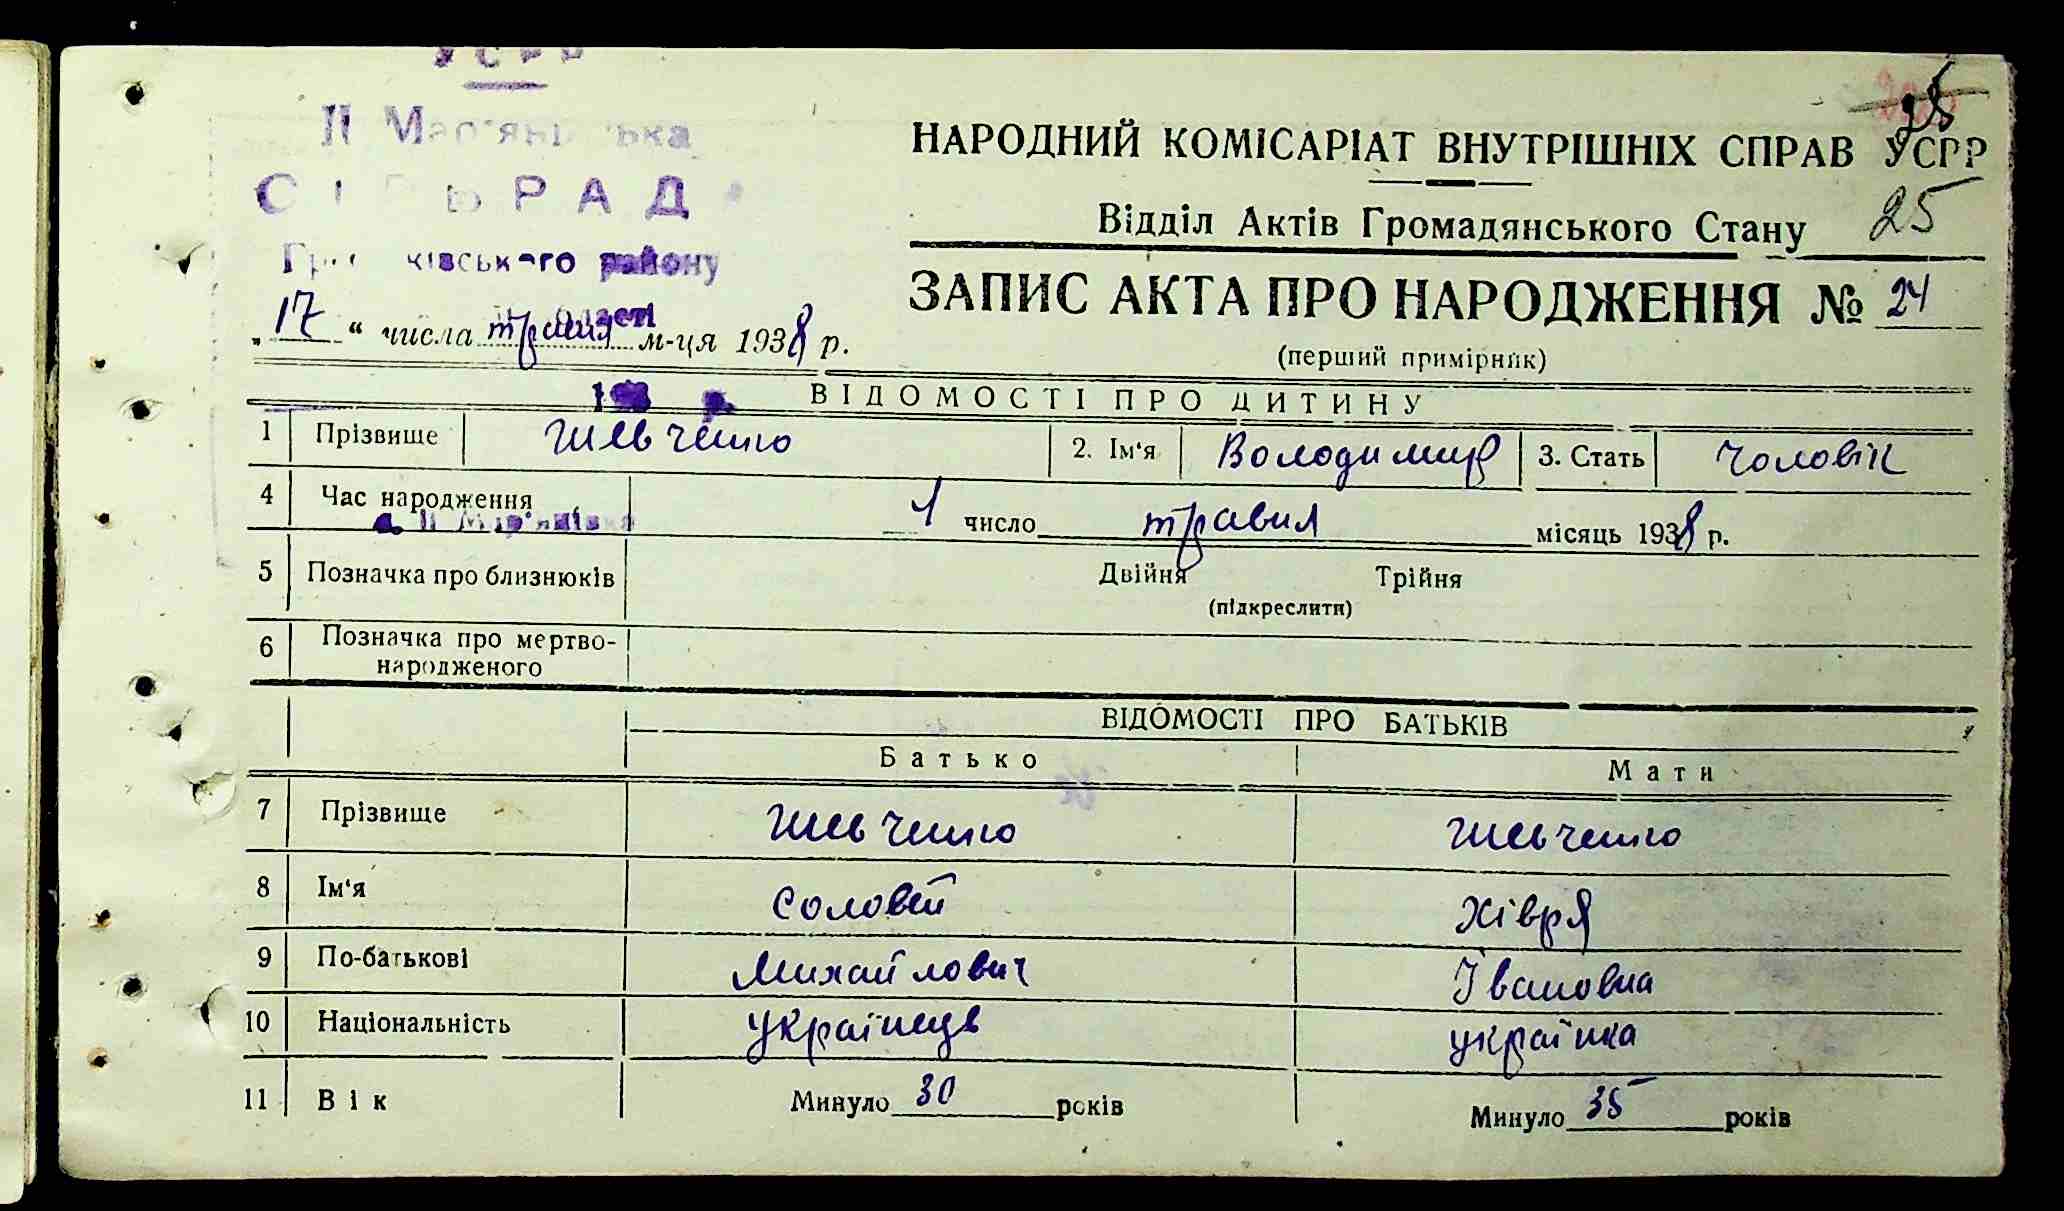 УСРР
ІІ Мар'янівська
СІЛЬРАДА
району
області
НАРОДНИЙ КОМІСАРІАТ ВНУТРІШНІХ СПРАВ УСРР
25
Відділ Актів Громадянського Стану
25
ЗАПИС АКТА ПРО НАРОДЖЕННЯ № 24
(перший примірник)
„17" числа травня м-ця 1938 р.
ВІДОМОСТІ ПРО ДИТИНУ
1 Прізвище Шевченко 2. Ім'я Володимир 3. Стать Чоловік
4 Час народження 1 число травня місяць 1938 р.
с. ІІ Мар'янівка
5 Позначка про близнюків Двійня Трійня
(підкреслити)
6 Позначка про мертво-
народженого
ВІДОМОСТІ ПРО БАТЬКІВ
Батько Мати
7 Прізвище Шевченко Шевченко
8 Ім'я Соловей Хівря
9 По-батькові Михайлович Івановна
10 Національність Українець українка
11 Вік Минуло 30 років Минуло 35 років